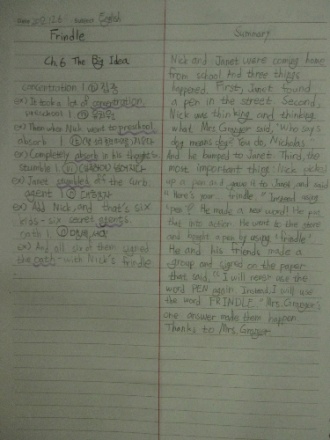 Date 2012.12.6 English
Frindle
Ch.6 The Big Idea
concentration | ① 집중
ex) It took a lot of concentration
preschool |
ex) Then when Nick went to preschool
absorb |
ex) Completely absorb in his thoughts
stumble |
ex) Janet stumbled at the curb.
agent
ex) And Nick, and that's six
kids - six secret agents.
oath |
ex) And all six of them signed
the oath with Nick's frindle
Summary
Nick and Janet were coming home
from school. And three things
happened. First, Janet found
a pen in the street. Second,
Nick was thinking and thinking
what Mrs. Granger said, "Who says
dog means dog? You do, Nicholas."
And he bumped to Janet. Third, the
most important thing: Nick picked
up a pen and gave it to Janet and said
"Here's your frindle." Instead using
"pen". He made a new word! He put
that into action. He went to the store
and bought a pen by using "frindle".
He and his friends made a
group and signed on the paper
that said, "I will never use the
word PEN again. Instead, I will use
the word FRINDLE." Mrs. Granger's
one answer made them happen.
Thanks to Mrs. Granger